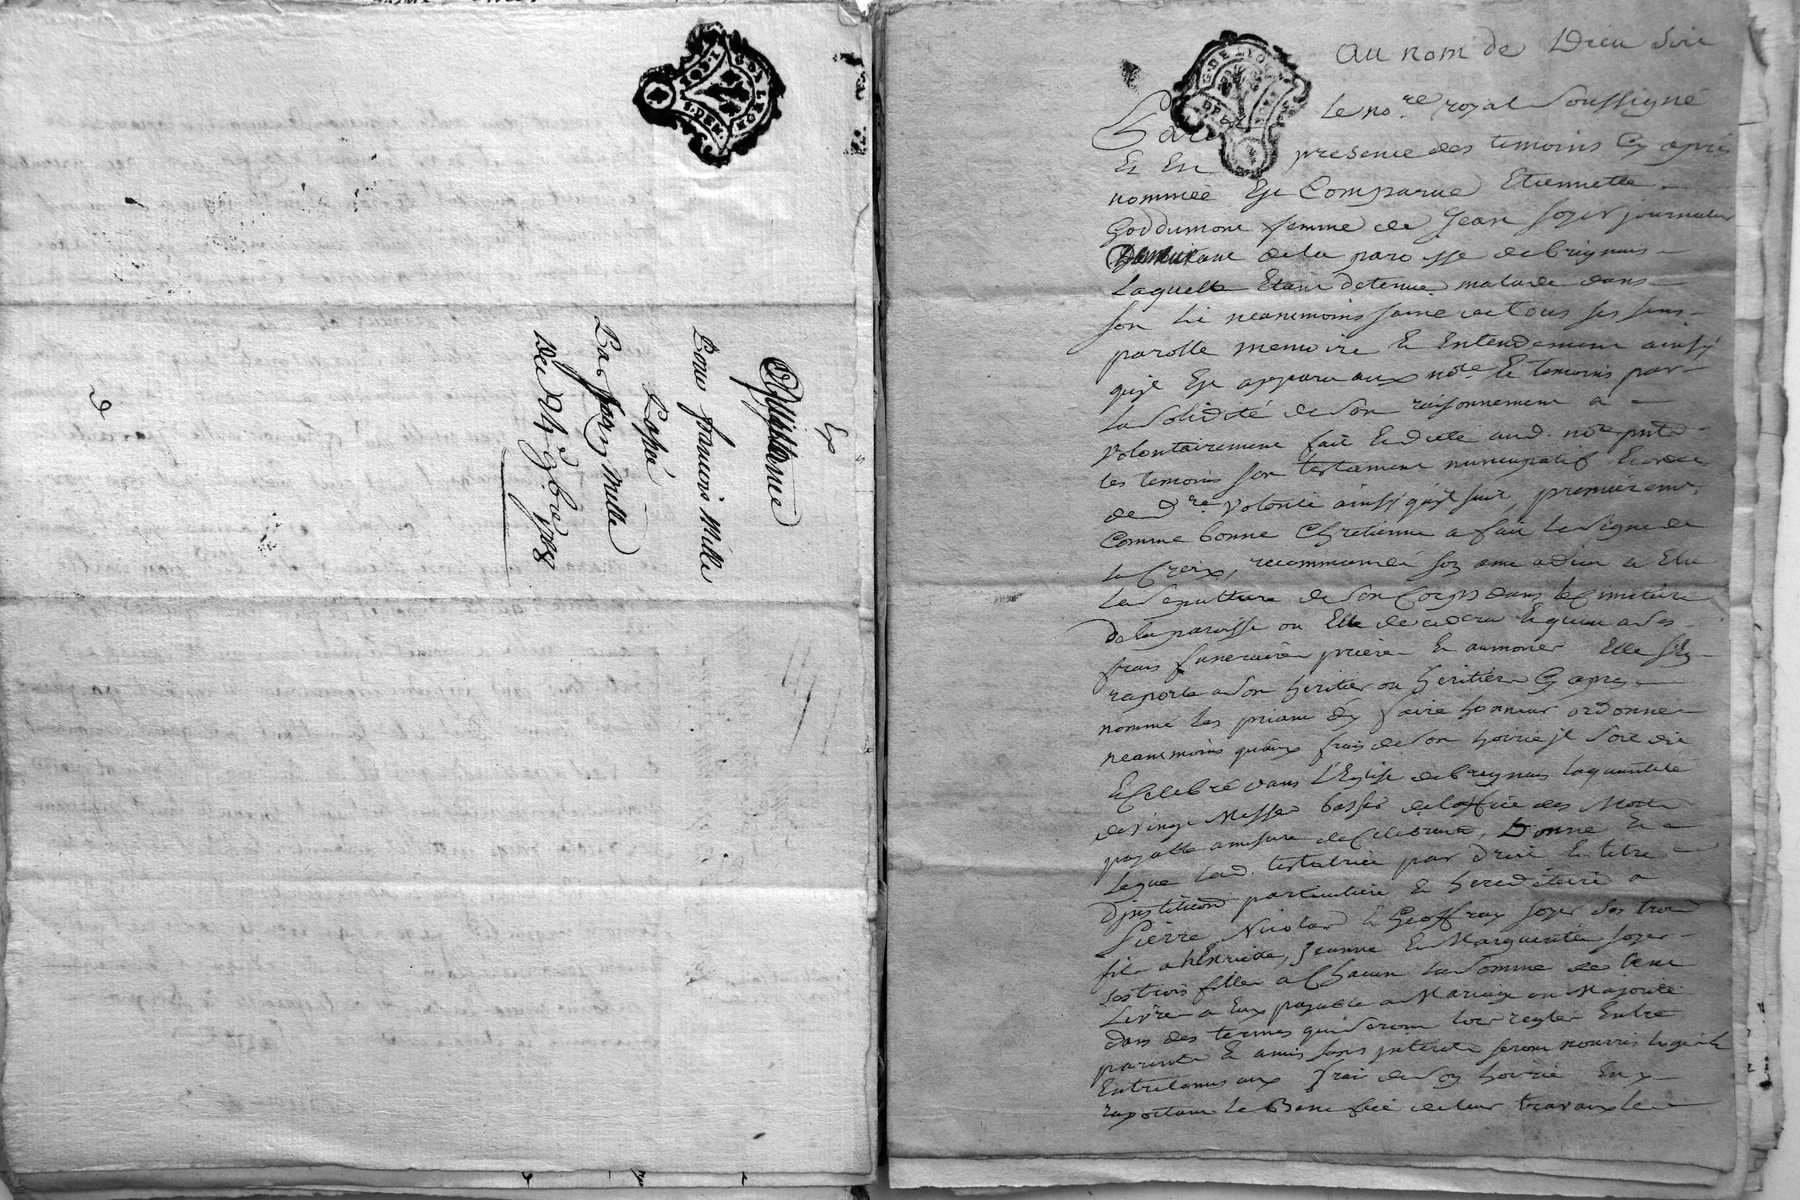 Ex
Quittance
Pour francois Mille
Passé
Par Jean Mille
Du 24 9bre 1768
Au nom de Dieu soit
Par le nore royal soussigné
Et En presence des temoins Cy apres
nommés Est Comparue Etiennette
femme de Jean Soyer journalier
habitant de la paroisse de brignais
Laquelle Etant detenue malade dans
son lit neanmoins saine de tous ses sens
parolle memoire Et Entendement ainsy
quil Est apparu aux nore Et temoins par
la solidité de son raisonnement a
volontairement fait Et dicté aud. nore pnt
les temoins son testament nuncupatif Et ordce
de dre volonté ainsy quil suit, premieremt.
Comme bonne Chretienne a fait le signe de
la Croix, recommandé son ame a dieu a Elu
la sepulture de son Corps dans le Cimitiere
de la paroisse ou Elle decedera Et quant a ses
frais funeraires prieres Et aumones Elle s'En
raporte a son heritier ou heritiere Cy apres
nommé les priant d'y faire honneur ordonne
neanmoins quaux frais de son hoirie jl soit dit
Et Celebré dans L'Eglise de brignais la quantité
de vingt Messes basses de loffice des Morts
payable a mesure de Celebration, Donne Et
Legue lad. testatrice par droit Et titre
d'jnstitution particuliere Et hereditaire a
Pierre Nicolas Et Geoffray Soyer ses trois
fils a henriette, Jeanne Et Marguerite Soyer
ses trois filles a Chacun la somme de Cent
Livres a Eux payable a Mariage ou Majorité
dans des termes qui seront lors reglés Entre
parents Et amis sans jnterets seront nourris
Entretenus aux frais de son hoirie En y
raportant le Benefice de leur travaux